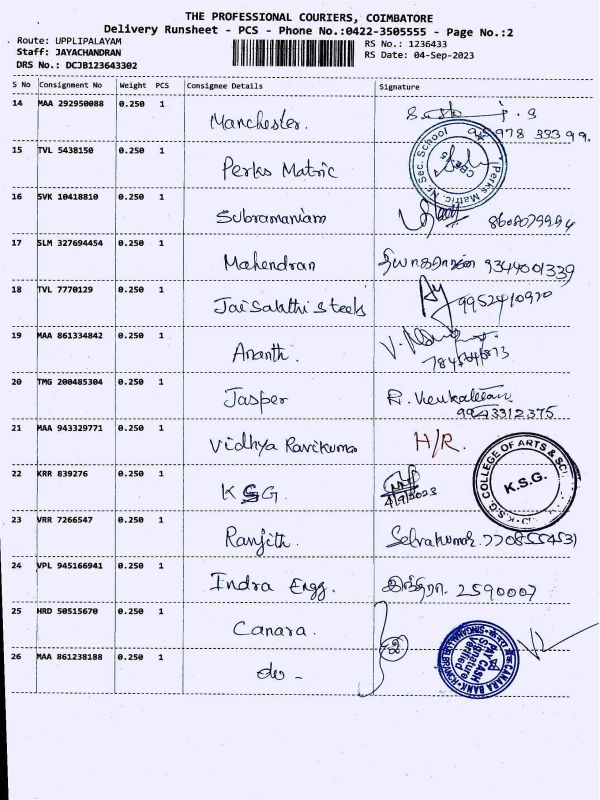 THE PROFESSIONAL COURIERS, COIMBATORE
Delivery Runsheet - PCS - Phone No.:0422-3505555 - Page No.:2
Route: UPPLIPALAYAM
Staff: JAYACHANDRAN
DRS No.: DCJB123643302
RS No.: 1236433
RS Date: 04-Sep-2023
S No Consignment No Weight PCS Consignee Details Signature
14 MAA 292950088 0.250 1 Manchester.
15 TVL 5438150 0.250 1 Perks Matric
Perks Matric. Hr. Sec. School
16 SVK 10418810 0.250 1 Subramaniam
17 SLM 327694454 0.250 1 Mahendran 9344001339
18 TVL 7770129 0.250 1 Jaisakthi steels 9952410970
19 MAA 861334842 0.250 1 Ananth.
20 TMG 200485304 0.250 1 Jasper R. Venkatesan
9943312375
21 MAA 943329771 0.250 1 Vidhya Ravikumar H/R.
22 KRR 839276 0.250 1 KSG. 4/9/2023
K.S.G. COLLEGE OF ARTS & SCI
K.S.G.
23 VRR 7266547 0.250 1 Ranjith. Selvakumar
24 VPL 945166941 0.250 1 Indra Engg. இந்திரா. 2590007
25 HRD 50515670 0.250 1 Canara. 2
CANARA BANK
PAY CASH
Signature
Verified
26 MAA 861238188 0.250 1 do -